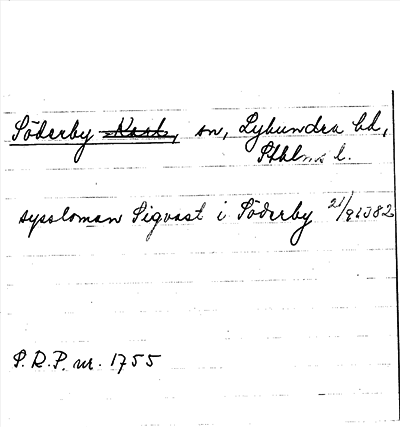 Söderby Karl, sn, Lyhundra hd,
Sthlms l.
syssloman Sigvast i Söderby 21/9 1382
S.R.P. nr. 1755